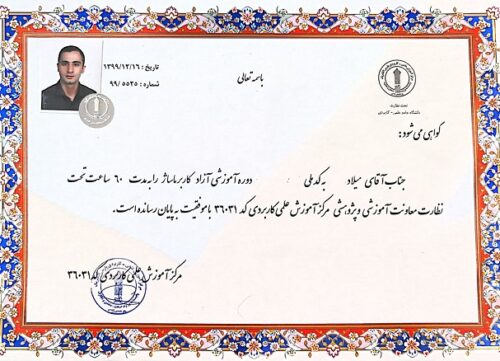 باسمه تعالی
تاریخ : ۱۳۹۹/۱۲/۱۶
شماره : ۹۹/۵۵۲۵
تحت نظارت
دانشگاه جامع علمی - کاربردی
گواهی می شود :
جناب آقای میلاد به کد ملی : دوره آموزشی آزاد کاربر ماساژ را به مدت ۶۰ ساعت تحت
نظارت معاونت آموزشی و پژوهشی مرکز آموزش علمی کاربردی کد ۳۶۰۳۱ با موفقیت به پایان رسانده است.
مرکز آموزش علمی کاربردی کد ۳۶۰۳۱